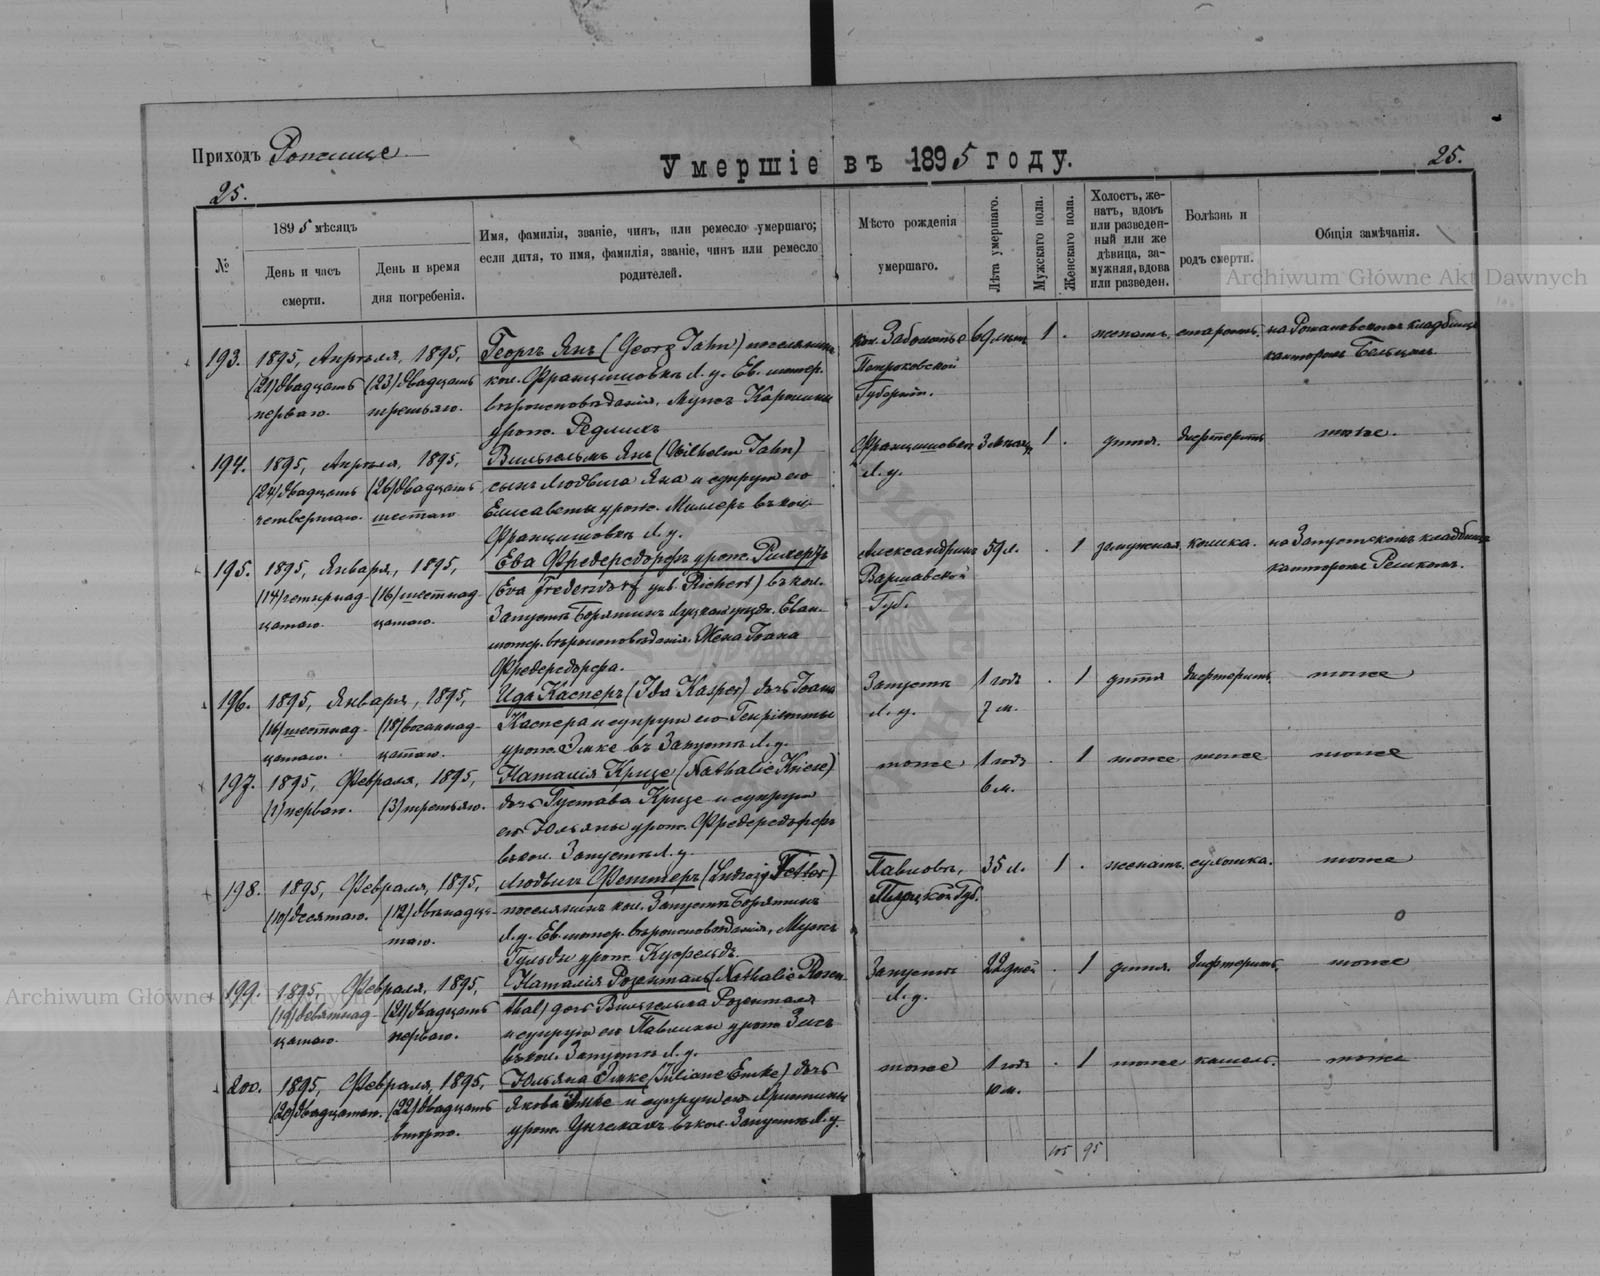 Приходъ Рожище
Умершіе въ 1895 году.
25.
25.
№
1895 мѣсяцъ
День и часъ смерти.
День и время дня погребенія.
Имя, фамилія, званіе, чинъ, или ремесло умершаго;
если дитя, то имя, фамилія, званіе, чинъ или ремесло
родителей.
Мѣсто рожденія
умершаго.
Лѣта умершаго.
Мужскаго пола.
Женскаго пола.
Холостъ, же-
натъ, вдовъ
или разведен-
ный или же
дѣвица, за-
мужняя, вдова
или разведен.
Болѣзнь и
родъ смерти.
Общія замѣчанія.
Archiwum Główne Akt Dawnych
193. 1895, Апрѣля, 1895,
(21) двадцать (23) двадцать
перваго. третьяго.
Георгъ Янъ (Georg Jahn) поселянинъ
кол. Францишовка Л. у. Ев. лютер.
вѣроисповѣданія. Мужъ Каролины
урож. Редлихъ
кол. Заболотье
Петроковской
Губерніи.
69 лѣтъ
1 .
женатъ.
старость.
на Рожановскомъ кладбищѣ
канторомъ
194. 1895, Апрѣля, 1895,
(24) двадцать (26) двадцать
четвертаго. шестаго
Вильгельмъ Янъ (Wilhelm Jahn)
сынъ Людвига Яна и супруги его
Елисаветы урож. Миллеръ въ кол.
Францишовкѣ Л. у.
Францишовка
Л. у.
3 мѣсяц.
1 .
дитя.
дифтеритъ
тоже.
195. 1895, Января, 1895,
(14) четырнад- (16) шестнад-
цатаго. цатаго.
Ева Фредерсдорфъ урож. Рихертъ
(Eva Fredersdorf geb. Richert) въ кол.
Запустъ Борятинъ Луцкаго уѣзда. Еван.
лютер. вѣроисповѣданія. Жена Іоана
Фредерсдорфа.
Александринъ
Варшавской
Губ.
59 л.
. 1
замужная
колика.
на Запустскомъ кладбищѣ
канторомъ
196. 1895, Января, 1895,
(16) шестнад- (18) восемнад-
цатаго. цатаго.
Ида Касперъ (Ida Kasper) дочь Іоана
Каспера и супруги его Генріетты
урож. Эмке въ Запустѣ Л. у.
Запустъ
Л. у.
1 годъ
7 м.
. 1
дитя
дифтеритъ.
тоже
197. 1895, Февраля, 1895,
(1) перваго. (3) третьяго.
Наталія Кризе (Nathalie Kriese)
дочь Густава Кризе и супруги
его Юльяны урож. Фредерсдорфъ
въ кол. Запустѣ Л. у.
тоже
1 годъ
6 м.
. 1
тоже
тоже
тоже
198. 1895, Февраля, 1895,
(10) десятаго. (12) двѣнадца-
таго.
Людвигъ Феттеръ (Ludwig Fetter)
поселянинъ кол. Запустъ Борятинъ
Л. у. Ев. лютер. вѣроисповѣданія, Мужъ
Гульды урож. Куфельдъ.
Павловъ,
Плоцкой Губ.
35 л.
1 .
женатъ.
сухотка.
тоже
199. 1895, Февраля, 1895,
(19) девятнад- (21) двадцать
цатаго. перваго.
Наталія Розенталь (Nathalie Rosen-
thal) дочь Вильгельма Розенталя
и супруги его Павлины урож.
въ кол. Запустѣ Л. у.
Запустъ
Л. у.
22 дней
. 1
дитя.
дифтеритъ.
тоже
200. 1895, Февраля, 1895,
(20) двадцатаго. (22) двадцать
второго.
Юльяна Эмке (Juliane Emke) дочь
Якова Эмке и супруги его Христины
урож. въ кол. Запустѣ Л. у.
тоже
1 годъ
10 м.
. 1
тоже
кашель.
тоже
105 95
Archiwum Główne Akt Dawnych